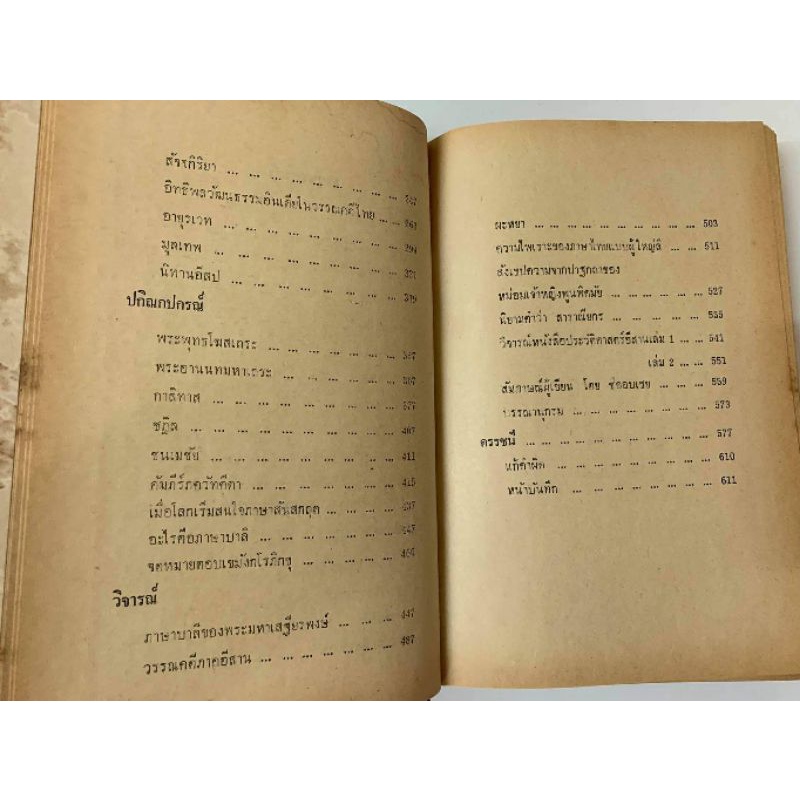 สัจจกิริยา ... ... ... ... ... ... ... ... ...
อิทธิพลวัฒนธรรมอินเดียในวรรณคดีไทย ... ...
อายุรเวท ... ... ... ... ... ... ... ... ...
มูลเทพ ... ... ... ... ... ... ... ... ...
นิทานอีสป ... ... ... ... ... ... ... ...
ปกิณกปกรณ์
พระพุทธโฆสเถระ ... ... ... ... ... ... ...
พระอานนทมหาเถระ ... ... ... ... ... ...
กาลิทาส ... ... ... ... ... ... ... ... ...
ชฎิล ... ... ... ... ... ... ... ... ...
ชนเมชัย ... ... ... ... ... ... ... ... 411
คัมภีร์ภควัทคีตา ... ... ... ... ... ... 415
เมื่อโลกเริ่มสนใจภาษาสันสกฤต ... ... ... ...
อะไรคือภาษาบาลี ... ... ... ... ... ...
จดหมายตอบเขมังกโรภิกขุ ... ... ... ... ...
วิจารณ์
ภาษาบาลีของพระมหาเสฐียรพงษ์ ... ... ...
วรรณคดีภาคอีสาน ... ... ... ... ... ... 487
ผะหยา ... ... ... ... ... ... ... ... ... 503
ความไพเราะของภาษาไทยแบบผู้ใหญ่ลี ... ... 511
สังเขปความจากปาฐกถาของ
หม่อมเจ้าหญิงพูนพิศมัย ... ... ... ... ... 527
นิยามคำว่า สาราณียกร ... ... ... ... ... 535
วิจารณ์หนังสือประวัติศาสตร์อีสานเล่ม 1 ... ... 541
เล่ม 2 ... ... 551
สัมภาษณ์ผู้เขียน โดย ... ... 559
บรรณานุกรม ... ... ... ... ... ... ... 573
ดรรชนี ... ... ... ... ... ... ... ... ... 577
แก้คำผิด ... ... ... ... ... ... ... ... 610
หน้าบันทึก ... ... ... ... ... ... ... ... 611